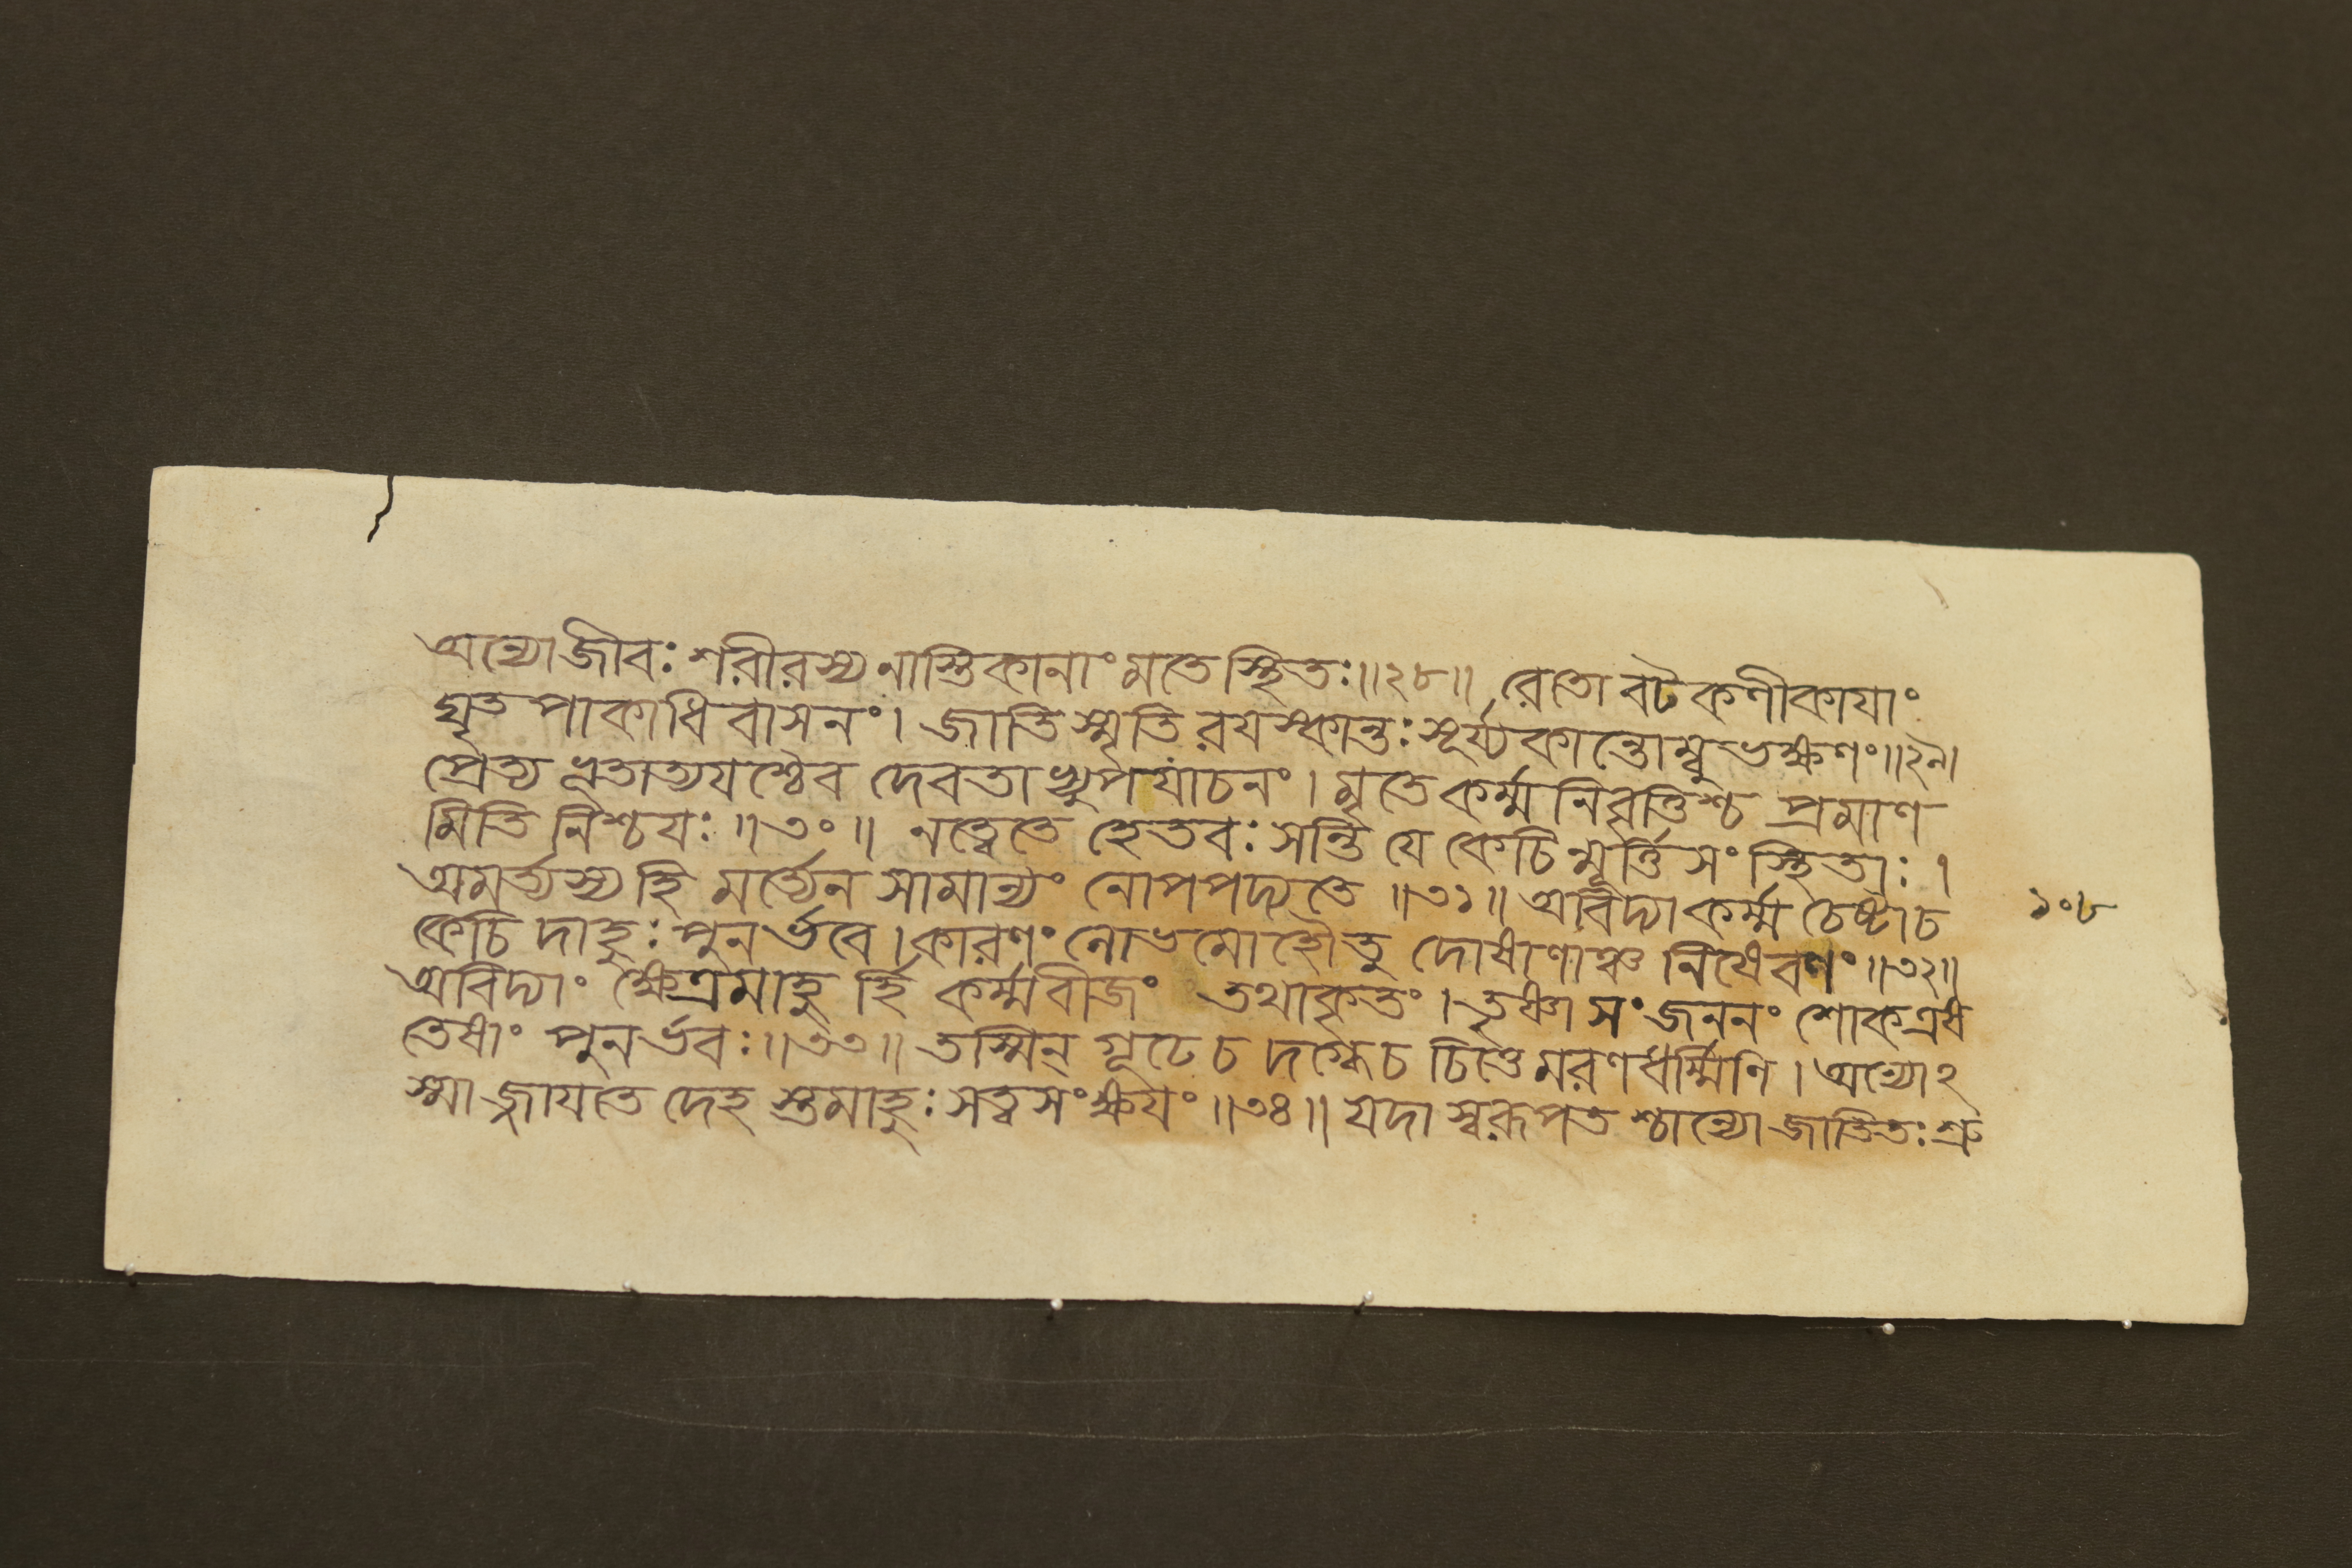 অন্যো জীবঃ শরীরস্য নাস্তিকানাং মতে স্থিতঃ॥২৮॥ রেতো বটকণীকাযাং
ঘৃতপাকাধিবাসনং। জাতি স্মৃতি রযস্কান্তঃ সূর্য্যকান্তোম্বুভক্ষণং॥২৯।
প্রেত্য ভূতাত্যযশ্চৈব দেবতাভ্যুপযাচনং। মৃতে কর্ম্ম নিবৃত্তিশ্চ প্রমাণ
মিতি নিশ্চযঃ॥৩০॥ নত্বেতে হেতবঃ সন্তি যে কেচিন্মূর্ত্তিসংস্থিতাঃ।
অমর্ত্যস্য হি মর্ত্যেন সামান্যং নোপপদ্যতে॥৩১॥ অবিদ্যা কর্ম্ম চেষ্টাচ
কেচিদাহুঃ পুনর্ভবে। কারণং লোভমোহৌতু দোষাণাঞ্চ নিষেবণং॥৩২॥
অবিদ্যাং ক্ষেত্রমাহু র্হি কর্ম্মবীজং তথাকৃতং। তৃষ্ণা সংজননং শোকএষ
তেষাং পুনর্ভবঃ॥৩৩॥ তস্মিন্ গূঢে চ দগ্ধেচ চিত্তে মরণধর্ম্মিণি। অন্যোঽ
স্মাজ্জাযতে দেহ স্তমাহুঃ সত্বসংক্ষযং॥৩৪॥ যদা স্বরূপত শ্চান্যো জাতিতঃ শ্রু
১০৮